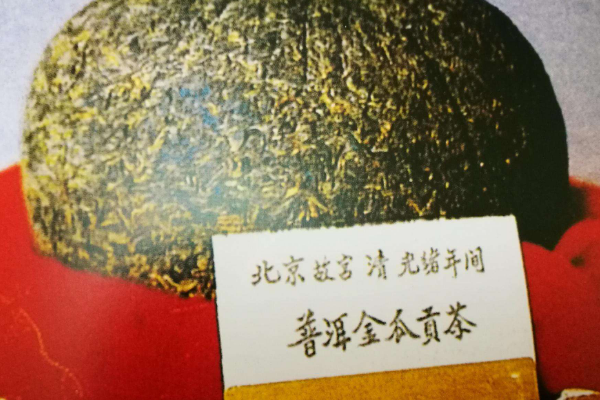 北京故宫 清 光绪年间
普洱金瓜贡茶